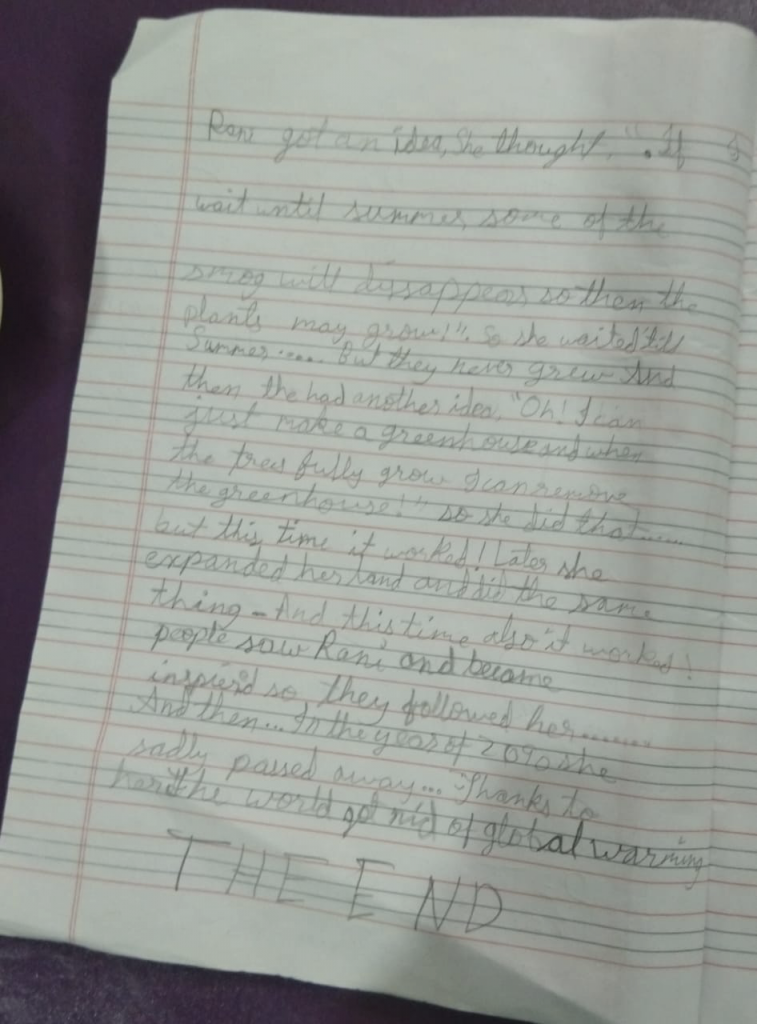 Rani got an idea, she thought, ". If I
wait until summer, some of the
smog will dissappears so then the
plants may grow!". So she waited till
Summer...... But they never grew And
then the had another idea, "Oh! I can
just make a greenhouse and when
the trees fully grow I can remove
the greenhouse!" so she did that......
but this time it worked! Later she
expanded her land and did the same
thing - And this time also it worked!
people saw Rani and became
inspierd so they followed her........
And then... In the year of 2090 she
sadly passed away... Thanks to
the world got rid of global warming
THE END